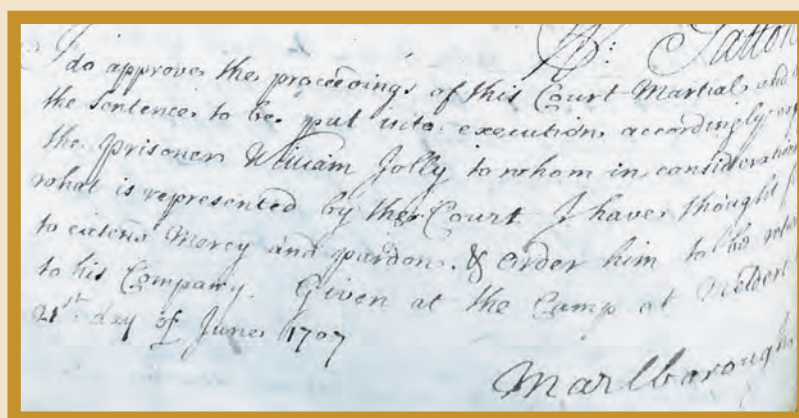 W: Tatton
I do approve the proceedings of this Court Martial and
the Sentence to be put into execution accordingly
the Prisoner William Jolly to whom in consideration
what is represented by the Court I have thought
to extend Mercy and pardon. & Order him to be
to his Company. Given at the Camp at Meldert
21st day of June 1707
Marlborough